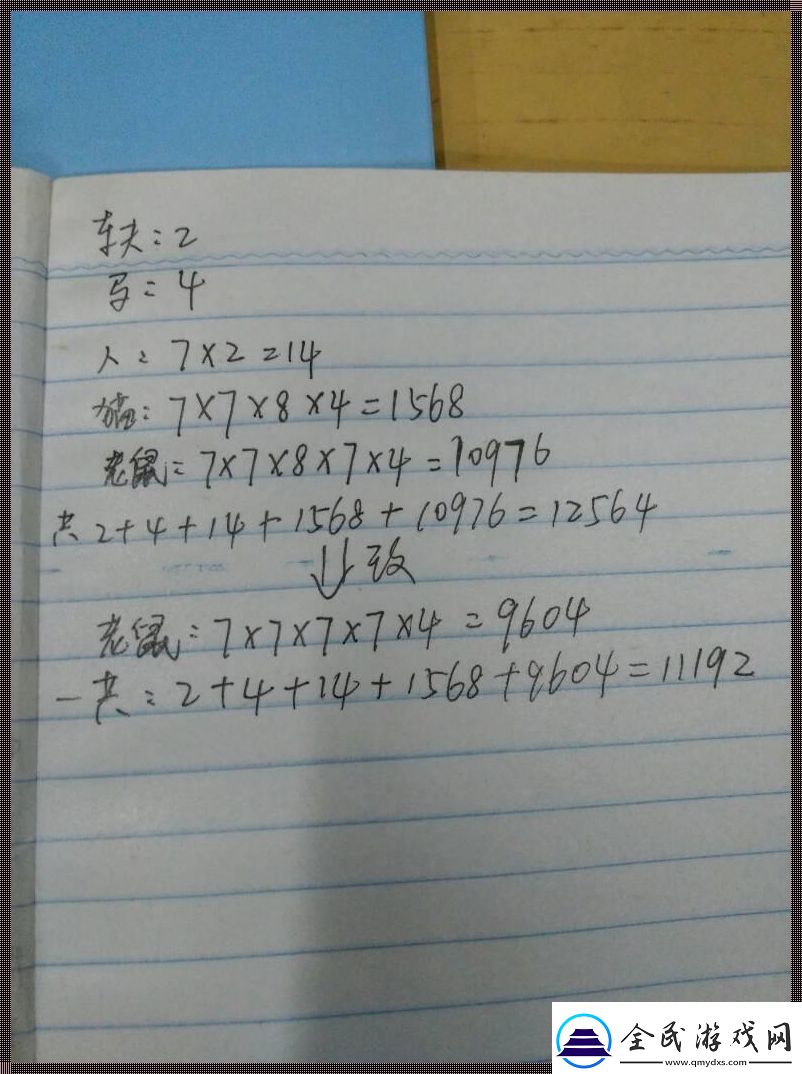 车夫：2
马：4
人：7×2=14
猫：7×7×8×4=1568
老鼠：7×7×8×7×4=10976
共2+4+14+1568+10976=12564
↓改
老鼠：7×7×7×7×4=9604
一共：2+4+14+1568+9604=11192
全民游戏网
www.qmydxs.com